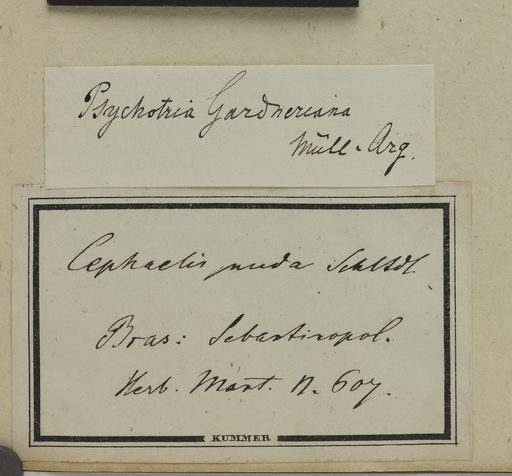 Psychotria Gardneriana
Müll-Arg.
Cephaelis nuda Schltdl.
Bras: Sebastinopol.
Herb. Mart. n. 607.
KUMMER